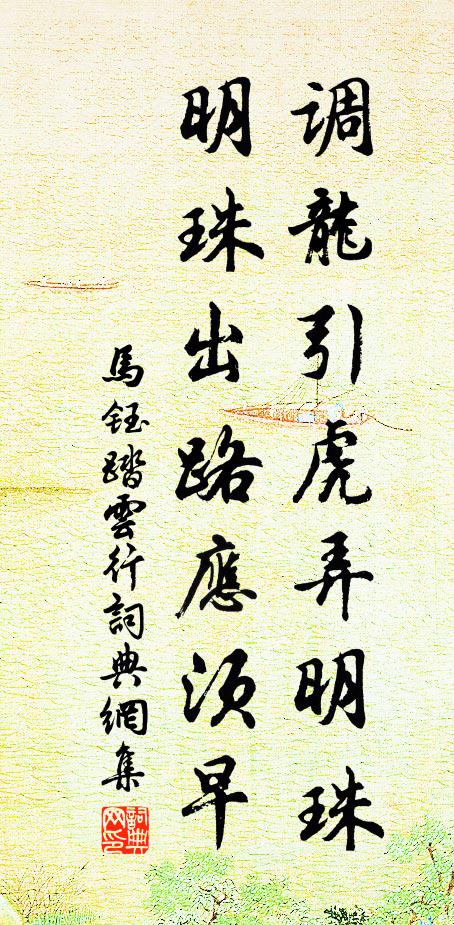 调龍引虎弄明珠
明珠出路應須早
馬鈺踏雲行詞典網集
詞典
网印